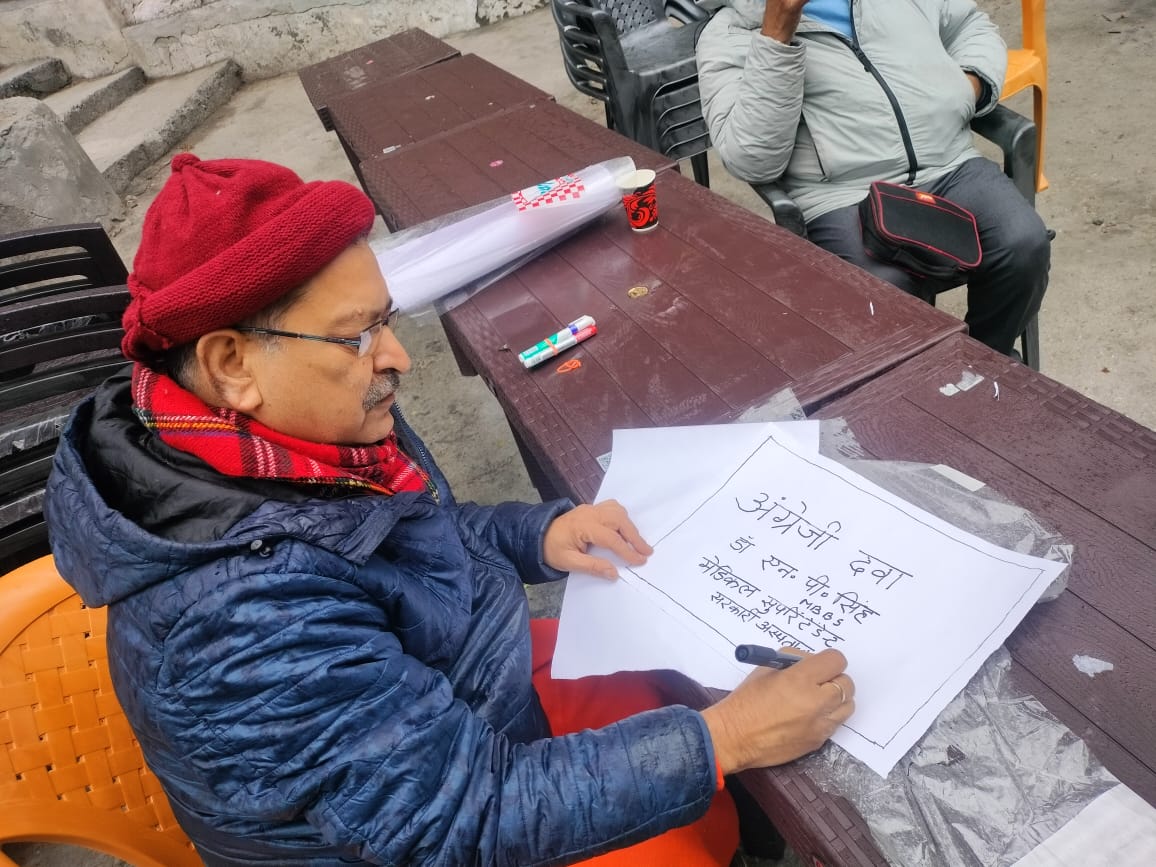 अंग्रेजी दवा
डां एन. पी. सिंह
MBBS
मेडिकल सुपरिंटेंडेन्ट
सरकारी अस्पताल